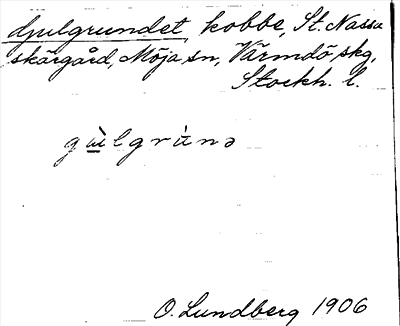 djulgrundet, kobbe, St. Nassa
skärgård, Möja sn, Värmdö skg,
Stockh. l.
O. Lundberg 1906